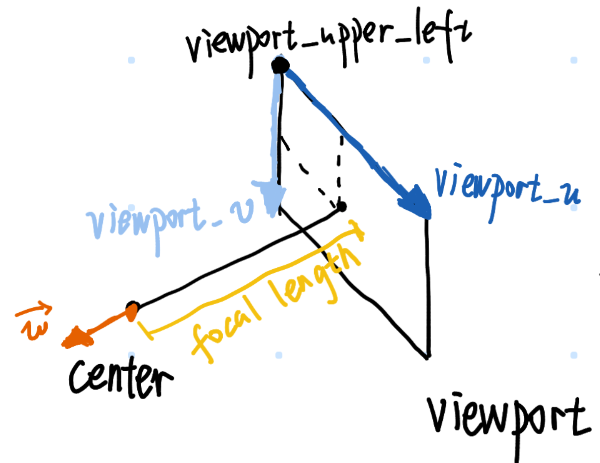 viewport_upper_left
viewport_u
viewport_v
focal length
w
center
viewport